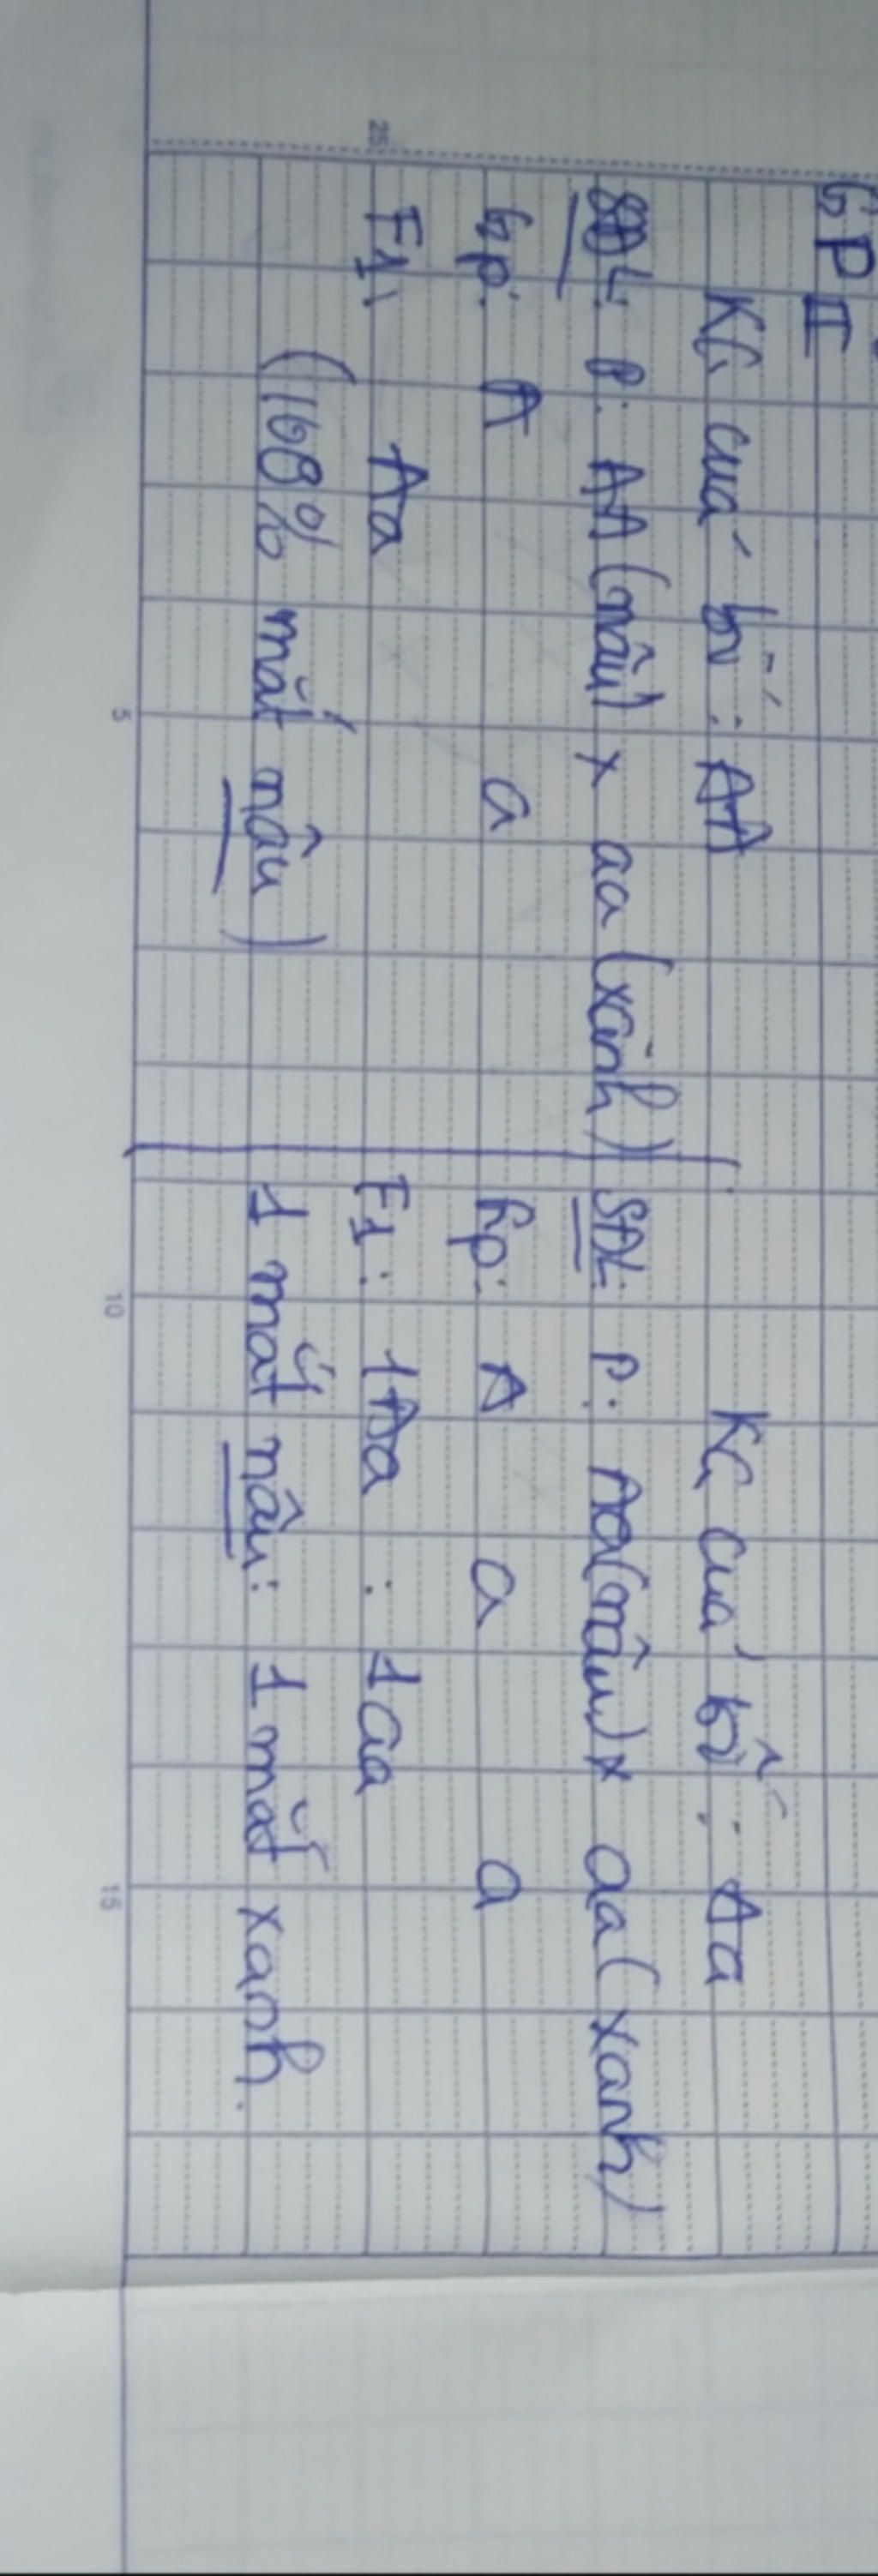 GP II
KG của bố : AA
SĐL: P: AA (nâu) x aa (xanh)
Gp: A a
F1: Aa
(100% mắt nâu)
KG của bố : Aa
SĐL: P: Aa (nâu) x aa (xanh)
Gp: A a a
F1: 1Aa : 1aa
1 mắt nâu : 1 mắt xanh.
25
5
10
15